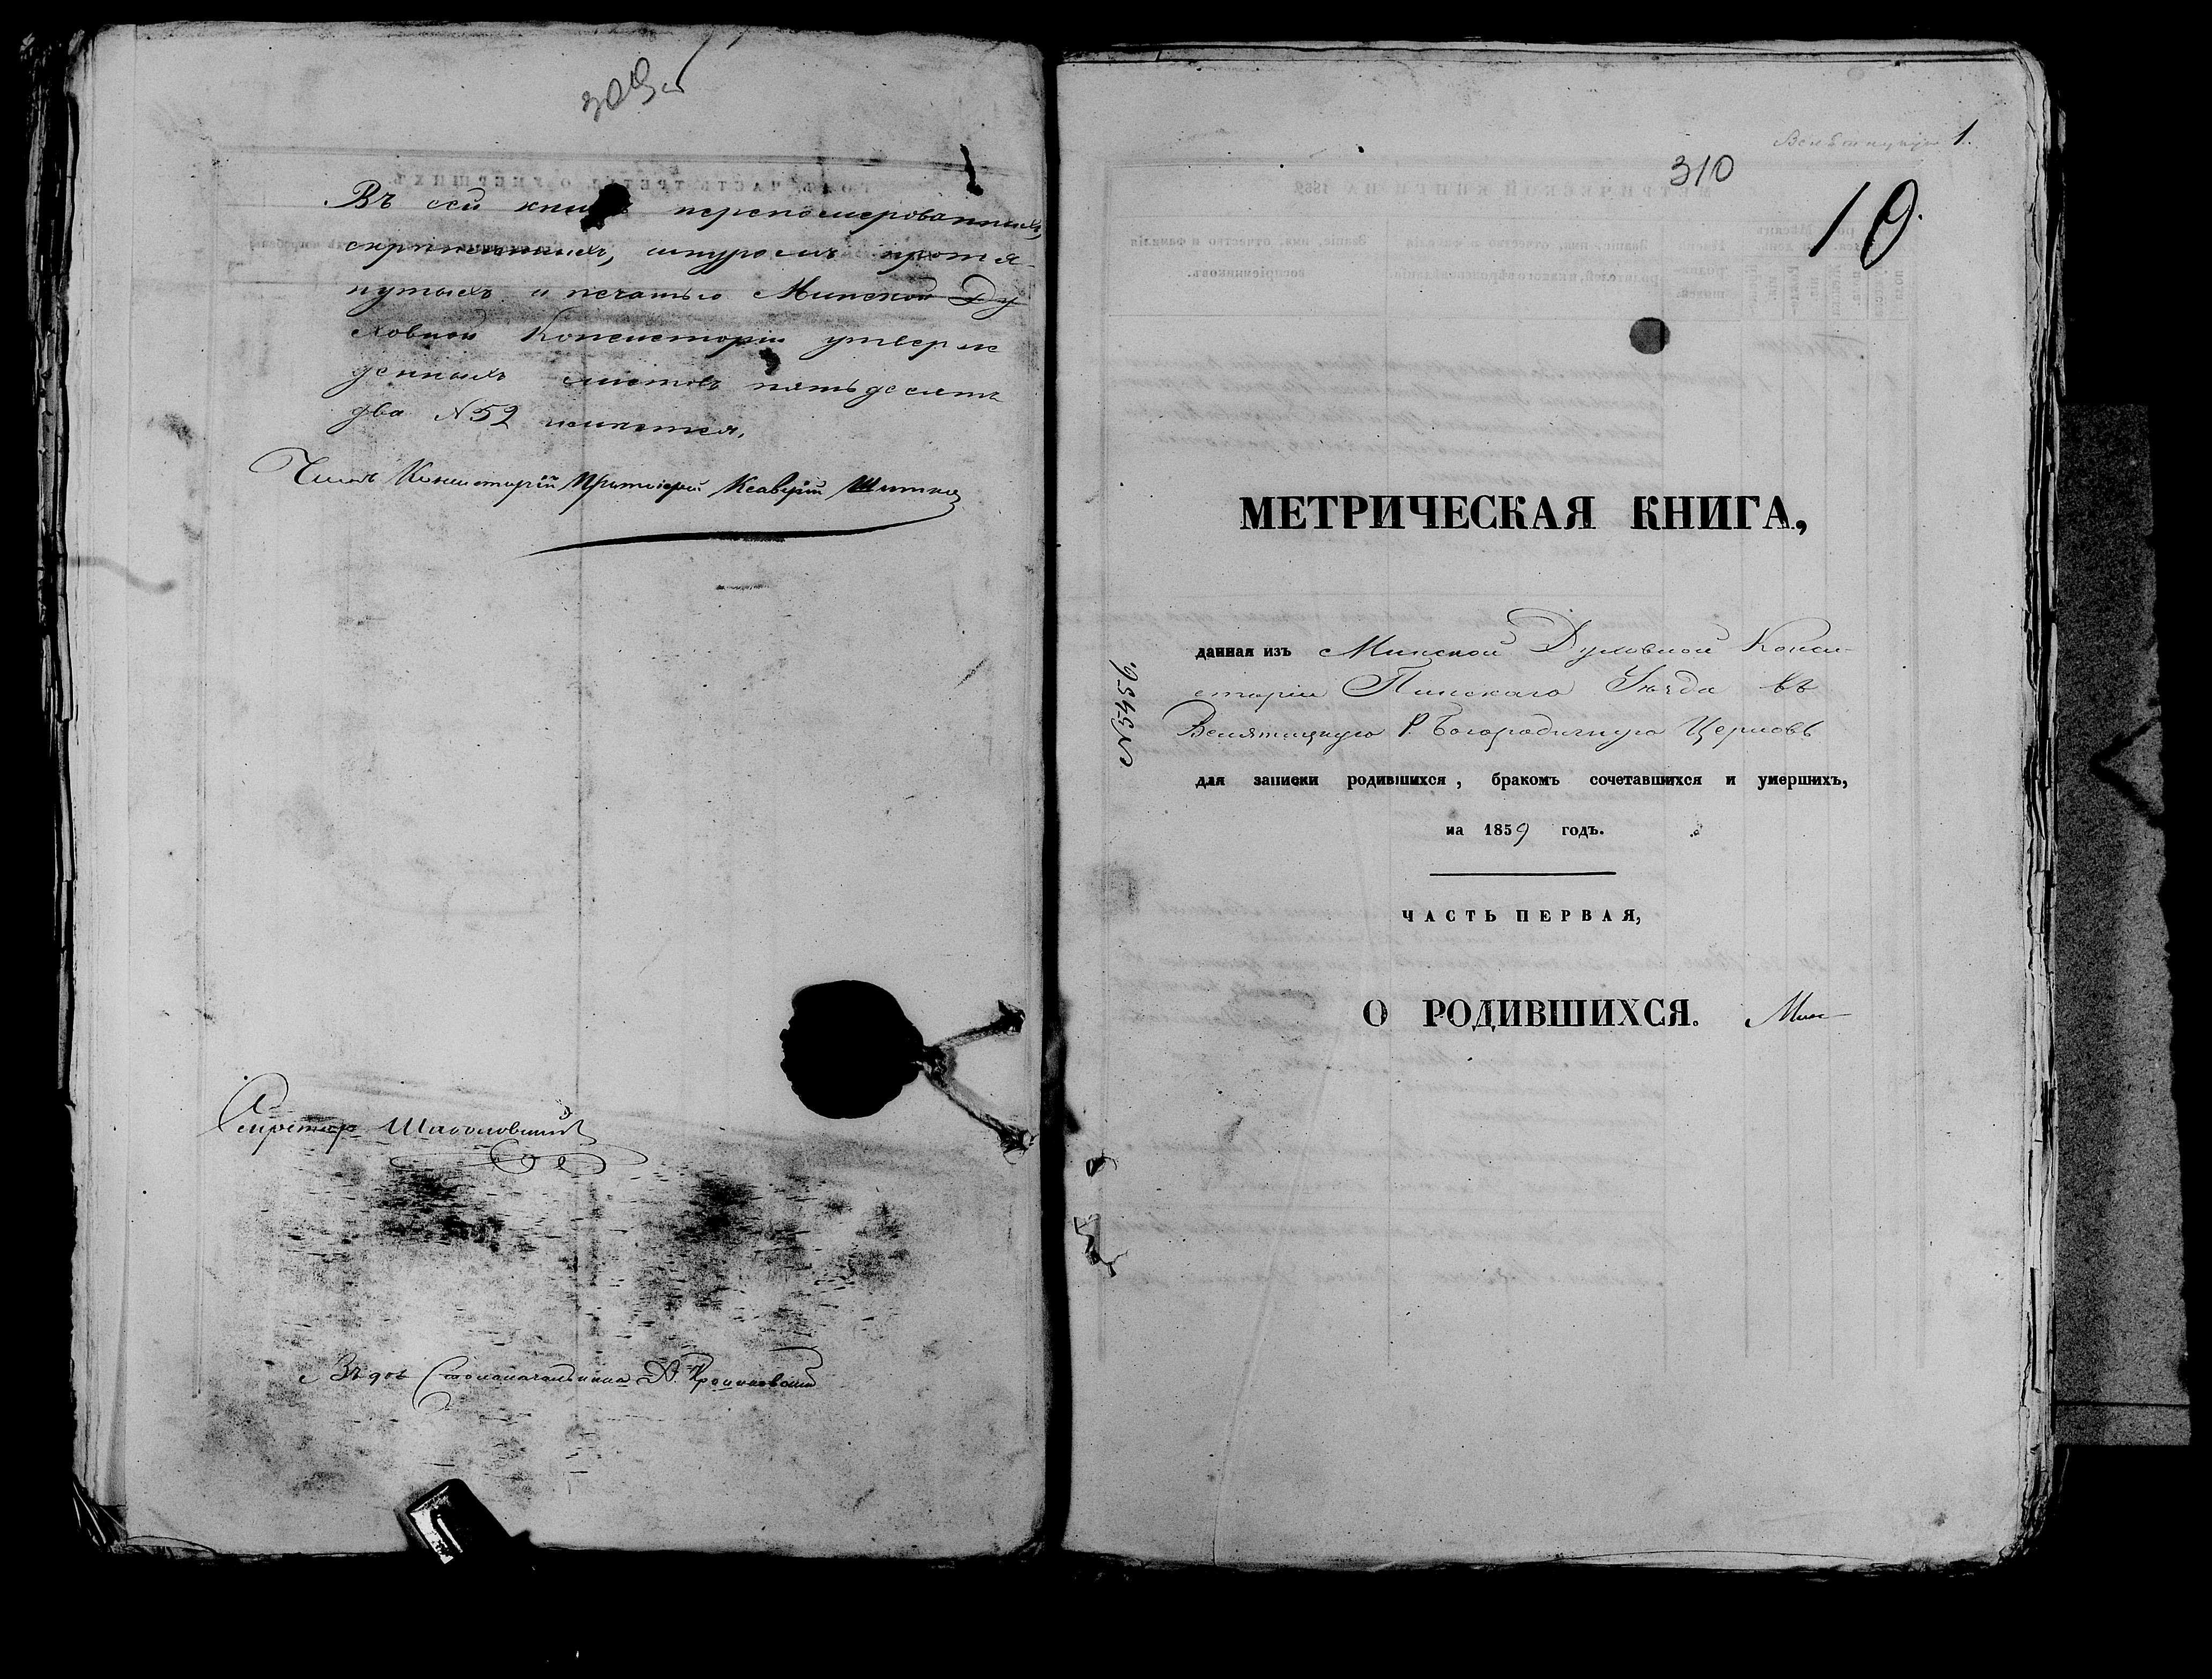 309 об
Въ сей книгѣ перепомерованныхъ,
скрѣпленныхъ, шнуромъ протя-
нутыхъ и печатью Минской Ду
ховной Консисторіи утверж
денныхъ листовъ пятьдесятъ
два №52 имѣется.
Членъ Консисторіи Протоіерей Ксаверій
Секретарь
Столоначальника
1.
310
10.
МЕТРИЧЕСКАЯ КНИГА,
данная изъ Минской Духовной Конси-
сторіи Пинскаго Уѣзда въ
Велятицкую Р. Богородичную Церковь
№5456.
для записки родившихся, бракомъ сочетавшихся и умершихъ,
на 1859 годъ.
ЧАСТЬ ПЕРВАЯ,
О РОДИВШИХСЯ. Мин